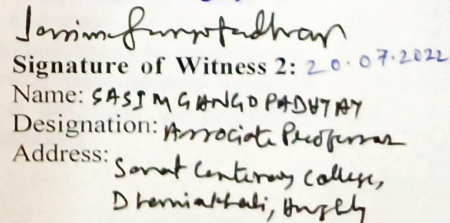 Signature of Witness 2: 20.07.2022
Name: SASIM GANGOPADHYAY
Designation: Associate Professor
Address:
Sarat Centenary College,
Dhaniakhali, Hughly